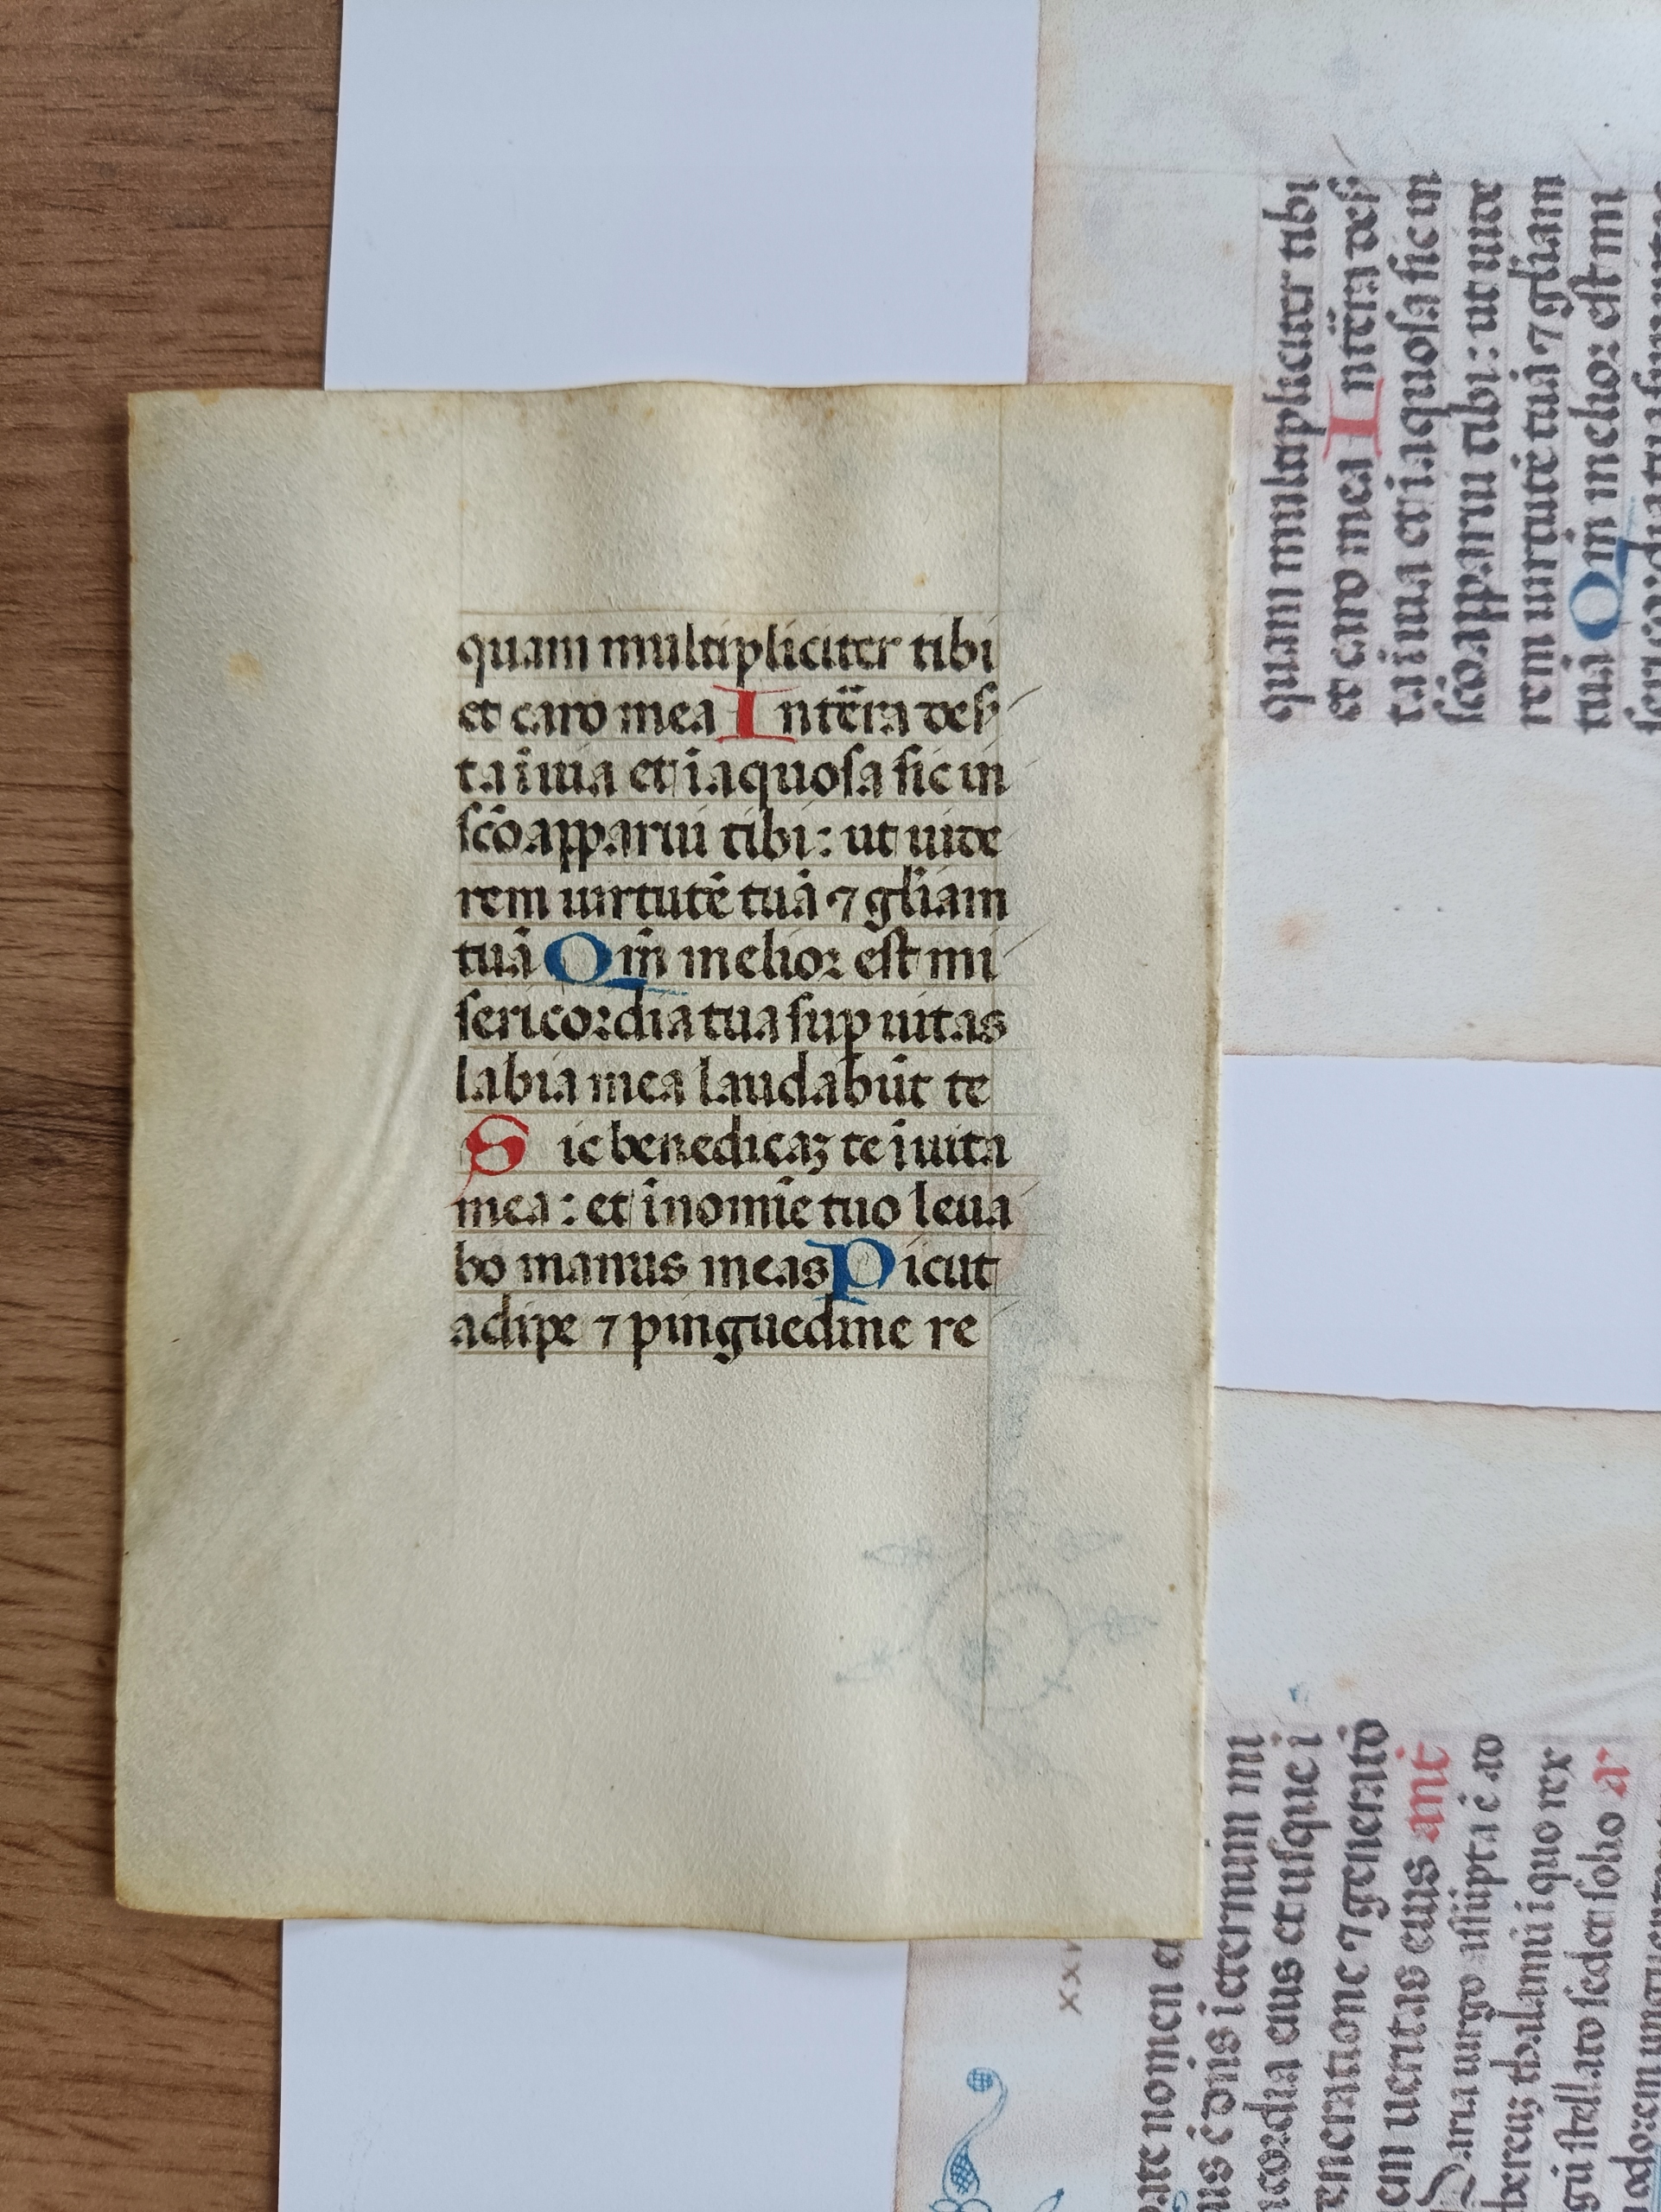 quam multipliciter tibi
et caro mea In tēra deser
ta īuia et īaquosa sic in
scō apparui tibi: ut uide
rem uirtutē tuā ⁊ gliam
tuā Qm̄ melior est mi
sericordia tua sup uitas
labia mea laudabūt te
Sic benedicaꝫ te ī uita
mea: et ī nomīe tuo leua
bo manus meas Picut
adipe ⁊ pinguedine re
quam multipliciter tibi
et caro mea In tēra deser
ta īuia et īaquosa sic in
scō apparui tibi: ut uide
rem uirtutē tuā ⁊ gliam
tuā Qm̄ melior est mi
nomen
ē dn̄s ī eternum mi
cordia eius et usque ī
generatione ⁊ generatiō
ueritas eius ant
Maria uirgo assūpta ē ad
thalamū ī quo rex
stellato sedet solio a